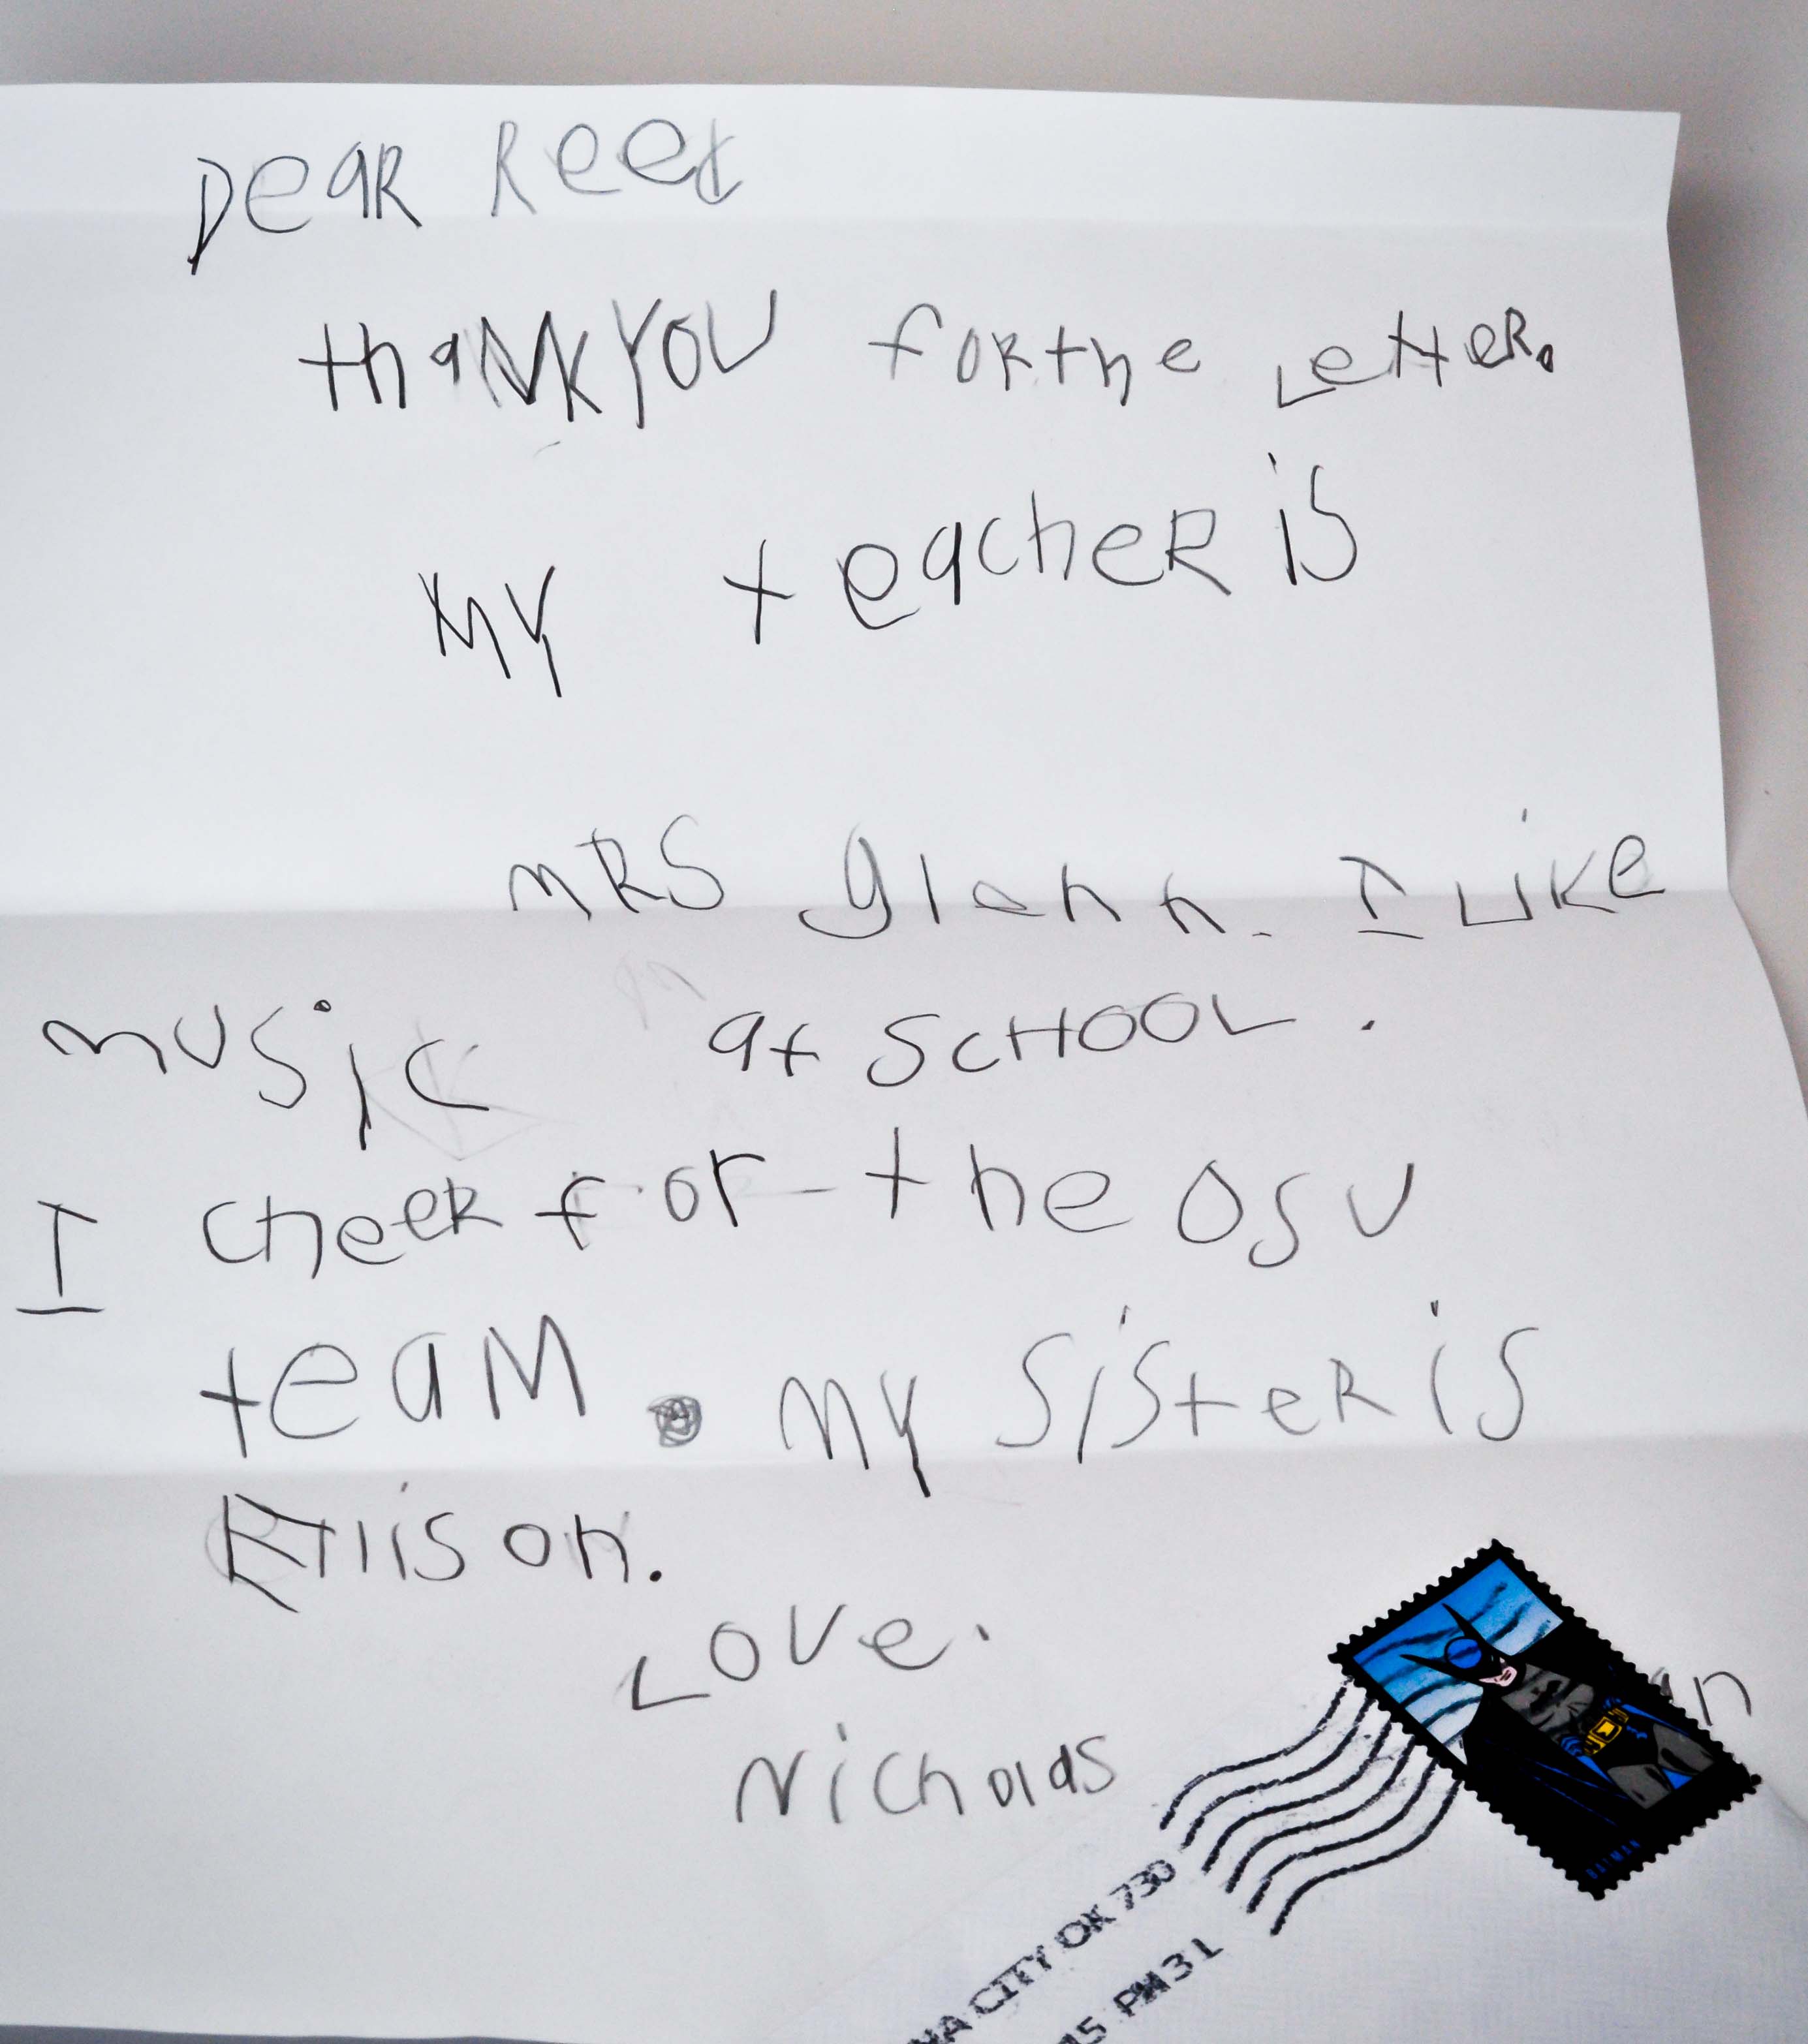 Dear Reed
thank you for the Letter.
My teacher is
MRS glenn. I Like
music at SCHOOL.
I cheer for the OSU
team. My Sister is
Ellison.
Love.
Nicholas
CITY OK 730
PM 3 L
BATMAN